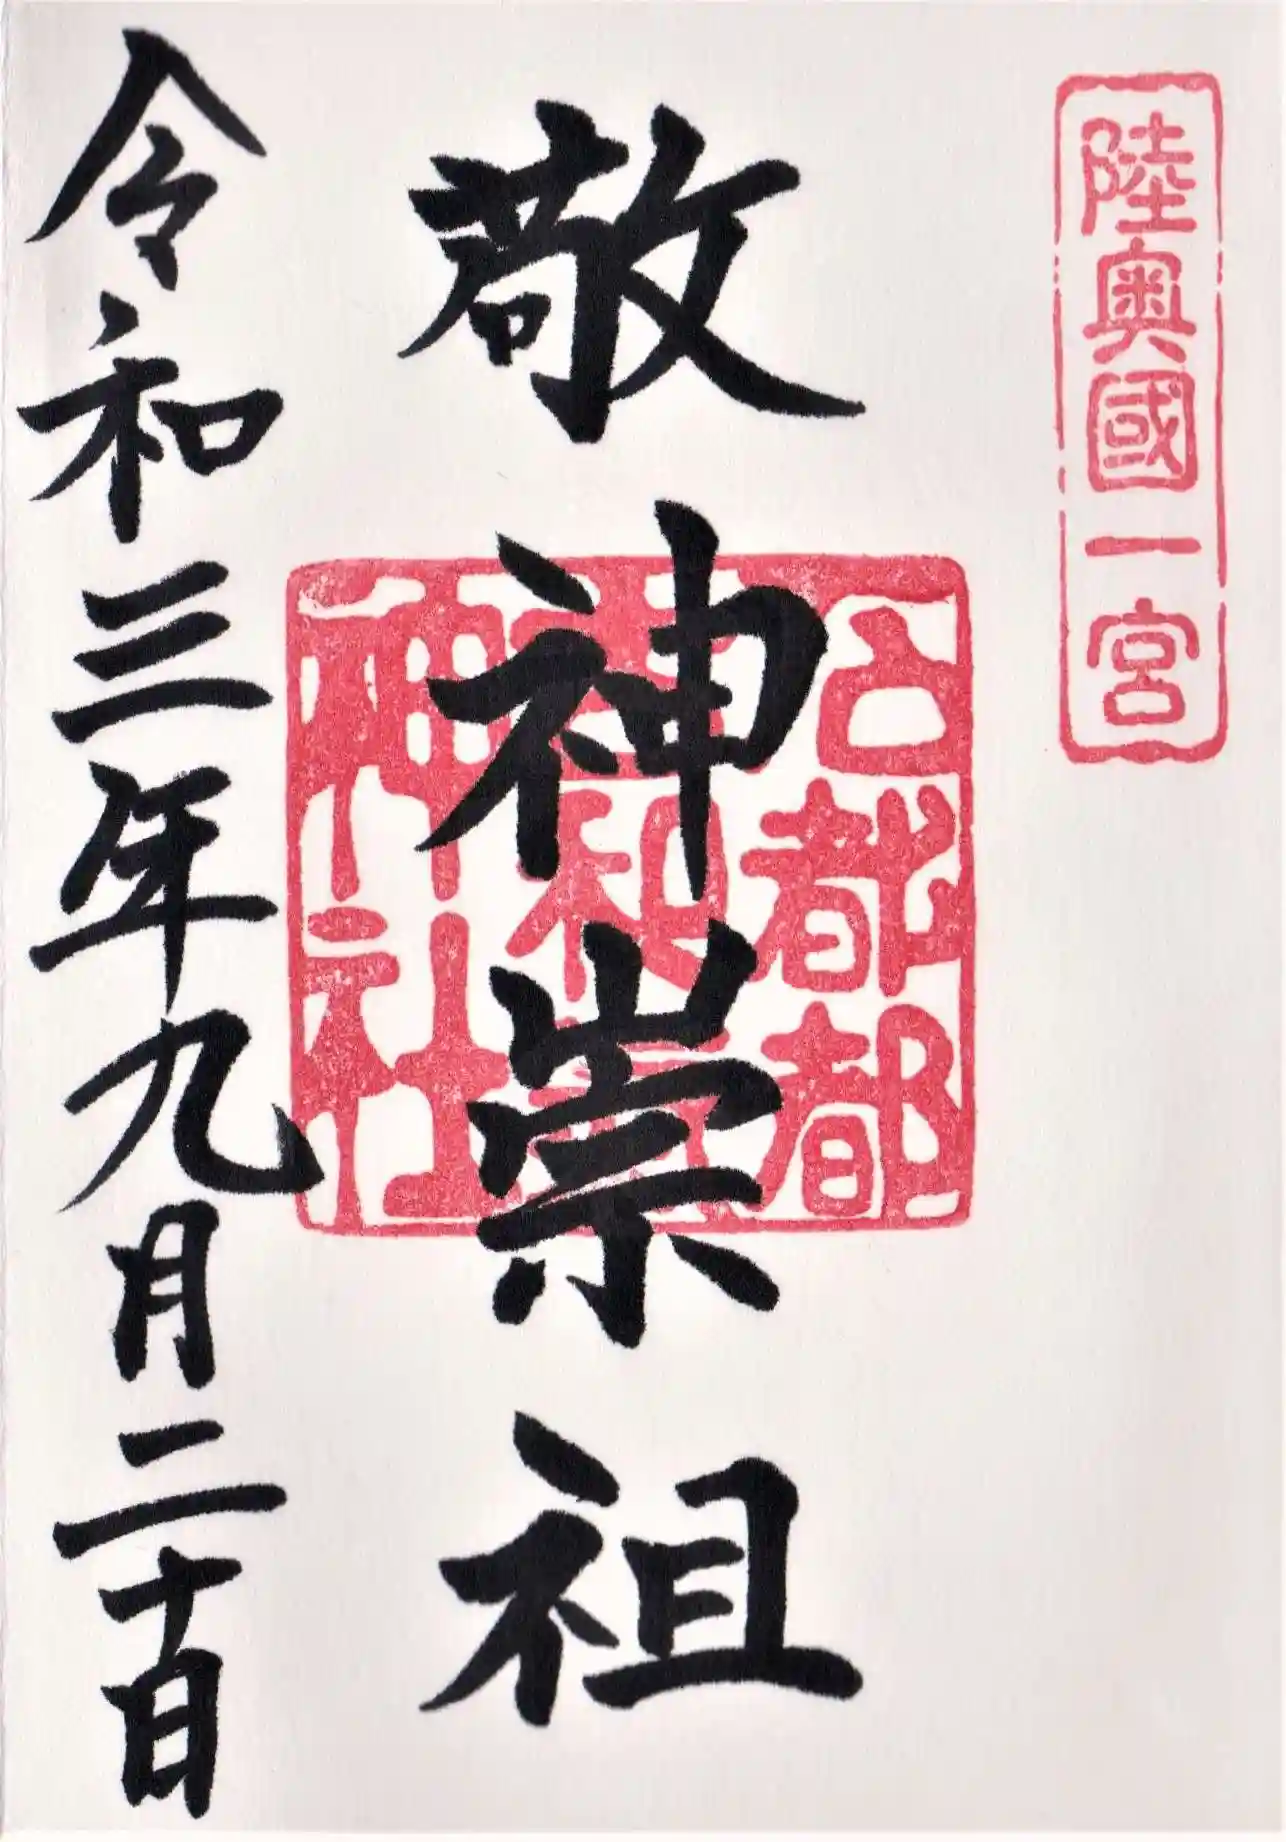 陸奥國一宮
敬神崇祖
石都都古和気神社
令和三年九月二十日